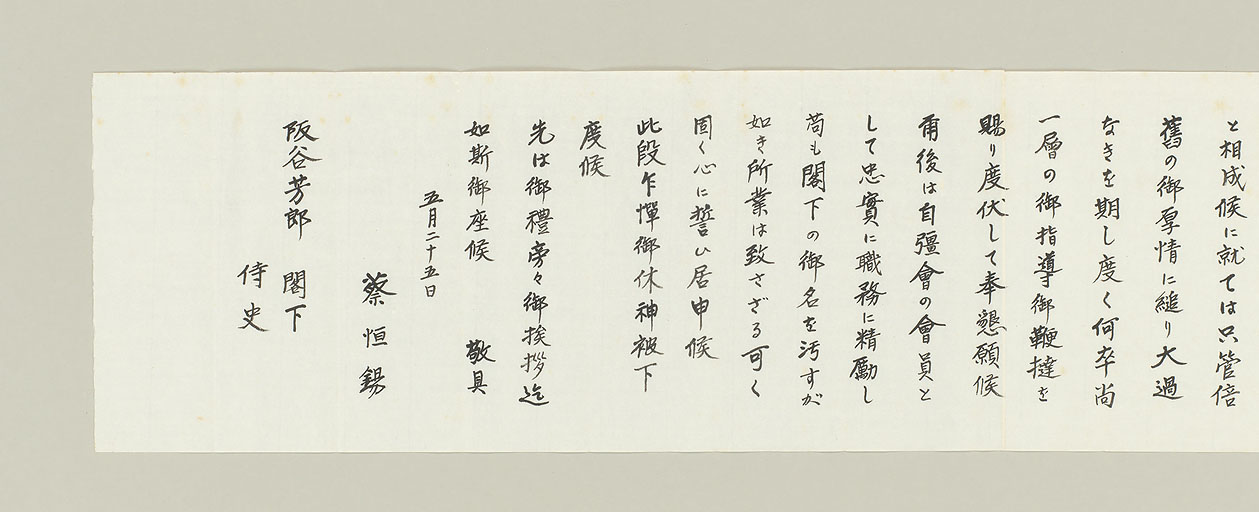 と相成候に就ては只管倍
舊の御厚情に縋り大過
なきを期し度く何卒尚
一層の御指導御鞭撻を
賜り度伏して奉懇願候
爾後は自彊會の會員と
して忠實に職務に精勵し
苟も閣下の御名を汚すが
如き所業は致さざる可く
固く心に誓ひ居申候
此段乍憚御休神被下
度候
先は御禮旁々御挨拶迄
如斯御座候　敬具
五月二十五日
蔡恒錫
阪谷芳郎　閣下
侍史